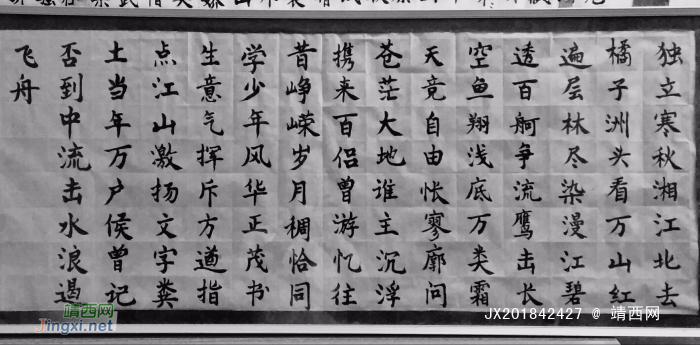 独立寒秋湘江北去
橘子洲头看万山红
遍层林尽染漫江碧
透百舸争流鹰击长
空鱼翔浅底万类霜
天竟自由怅寥廓问
苍茫大地谁主沉浮
携来百侣曾游忆往
昔峥嵘岁月稠恰同
学少年风华正茂书
生意气挥斥方遒指
点江山激扬文字粪
土当年万户侯曾记
否到中流击水浪遏
飞舟
靖西网
Jingxi.net
JX201842427 @ 靖西网